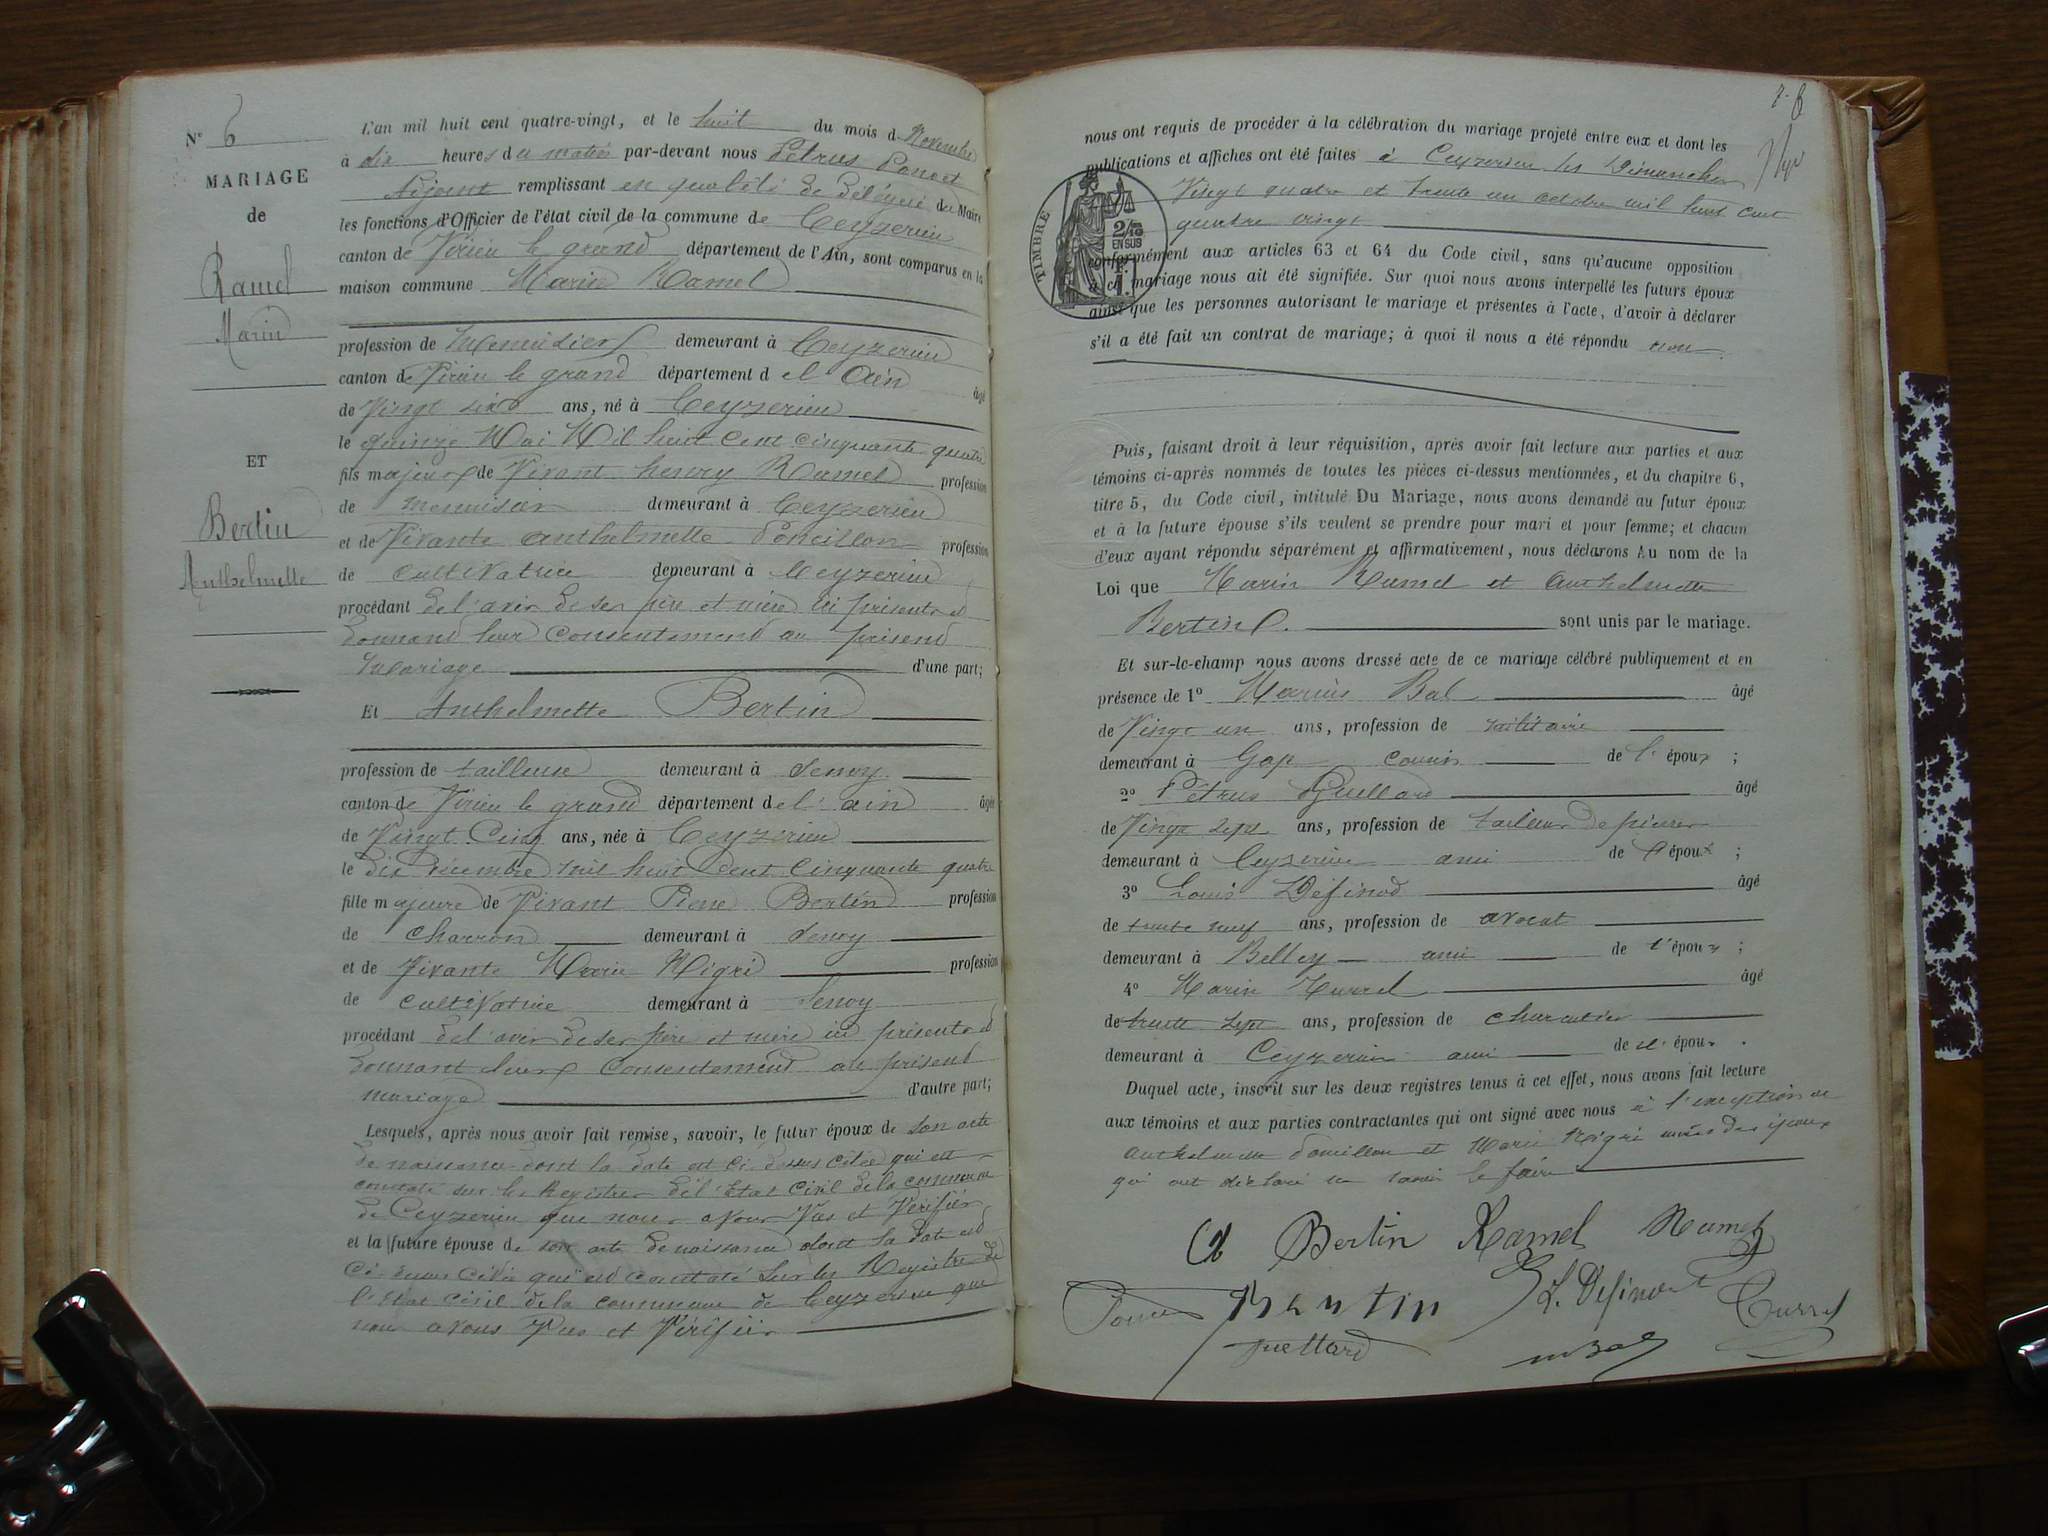 N° 6
MARIAGE
de
Ramel
Marin
ET
Bertin
Anthelmette
L'an mil huit cent quatre-vingt, et le huit du mois de Novembre
à dix heures du matin par-devant nous Pétrus Poncet
Adjoint remplissant en qualité de Délégué du Maire
les fonctions d'Officier de l'état civil de la commune de Ceyzerieu
canton de Virieu le grand département de l'Ain, sont comparus en la
maison commune Marin Ramel
profession de Menuisier demeurant à Ceyzerieu
canton de Virieu le grand département d el Ain âgé
de Vingt six ans, né à Ceyzerieu
le quinze Mai Mil huit Cent Cinquante quatre
fils majeur de Vivant henry Ramel profession
de Menuisier demeurant à Ceyzerieu
et de Vivante Anthelmette Poncillon profession
de Cultivatrice demeurant à Ceyzerieu
procédant de l'avis de ses père et mère ici présents et
donnant leur Consentement au présent
Mariage d'une part;
Et Anthelmette Bertin
profession de tailleuse demeurant à Senoy
canton de Virieu le grand département del' ain âgée
de Vingt Cinq ans, née à Ceyzerieu
le dix décembre mil huit Cent Cinquante quatre
fille majeure de Vivant Pierre Bertin profession
de Charron demeurant à Senoy
et de Vivante Marie Nigri profession
de Cultivatrice demeurant à Senoy
procédant del'avis de ses père et mère ici présents et
donnant leur Consentement au présent
mariage d'autre part;
Lesquels, après nous avoir fait remise, savoir, le futur époux de son acte
de naissance dont la date est ci dessus citée qui est
constaté sur les Registres del'Etat Civil de la commune
de Ceyzerieu que nous avons Vus et Vérifiés
et la future épouse de son acte de naissance dont la date est
Ci dessus citée qui est constaté Sur les Registres de
l'Etat civil de la commune de Ceyzerieu que
nous avons Vus et Vérifiés
7. 6
nous ont requis de procéder à la célébration du mariage projeté entre eux et dont les
publications et affiches ont été faites à Ceyzerieu les Dimanches
Vingt quatre et trente un octobre mil huit cent
quatre vingt
TIMBRE
2/10
EN SUS
conformément aux articles 63 et 64 du Code civil, sans qu'aucune opposition
à ce mariage nous ait été signifiée. Sur quoi nous avons interpellé les futurs époux
ainsi que les personnes autorisant le mariage et présentes à l'acte, d'avoir à déclarer
s'il a été fait un contrat de mariage; à quoi il nous a été répondu non
Puis, faisant droit à leur réquisition, après avoir fait lecture aux parties et aux
témoins ci-après nommés de toutes les pièces ci-dessus mentionnées, et du chapitre 6,
titre 5, du Code civil, intitulé Du Mariage, nous avons demandé au futur époux
et à la future épouse s'ils veulent se prendre pour mari et pour femme; et chacun
d'eux ayant répondu séparément et affirmativement, nous déclarons Au nom de la
Loi que Marin Ramel et Anthelmette
Bertin sont unis par le mariage.
Et sur-le-champ nous avons dressé acte de ce mariage célébré publiquement et en
présence de 1° Marius Bal âgé
de Vingt un ans, profession de militaire
demeurant à Gap cousin de l' époux ;
2° Pétrus Guillard âgé
de Vingt sept ans, profession de tailleur de pierres
demeurant à Ceyzerieu ami de l'époux ;
3° Louis Définod âgé
de trente neuf ans, profession de avocat
demeurant à Belley ami de l'époux ;
4° Marin Turrel âgé
de trente sept ans, profession de charcutier
demeurant à Ceyzerieu ami de l'époux .
Duquel acte, inscrit sur les deux registres tenus à cet effet, nous avons fait lecture
aux témoins et aux parties contractantes qui ont signé avec nous à l'exception de
Anthelmette Poncillon et Marie Nigri mères des époux
qui ont déclaré ne savoir le faire
A Bertin Ramel Ramel
Poncet Bertin L. Définod Turrel
guillard m Bal